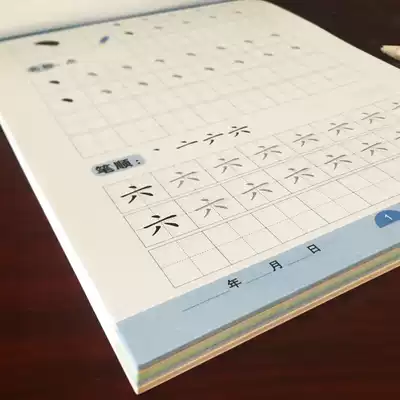 笔顺：丶 亠 六 六
六 六 六 六 六 六 六 六
六 六 六 六 六 六 六 六
年 月 日
1